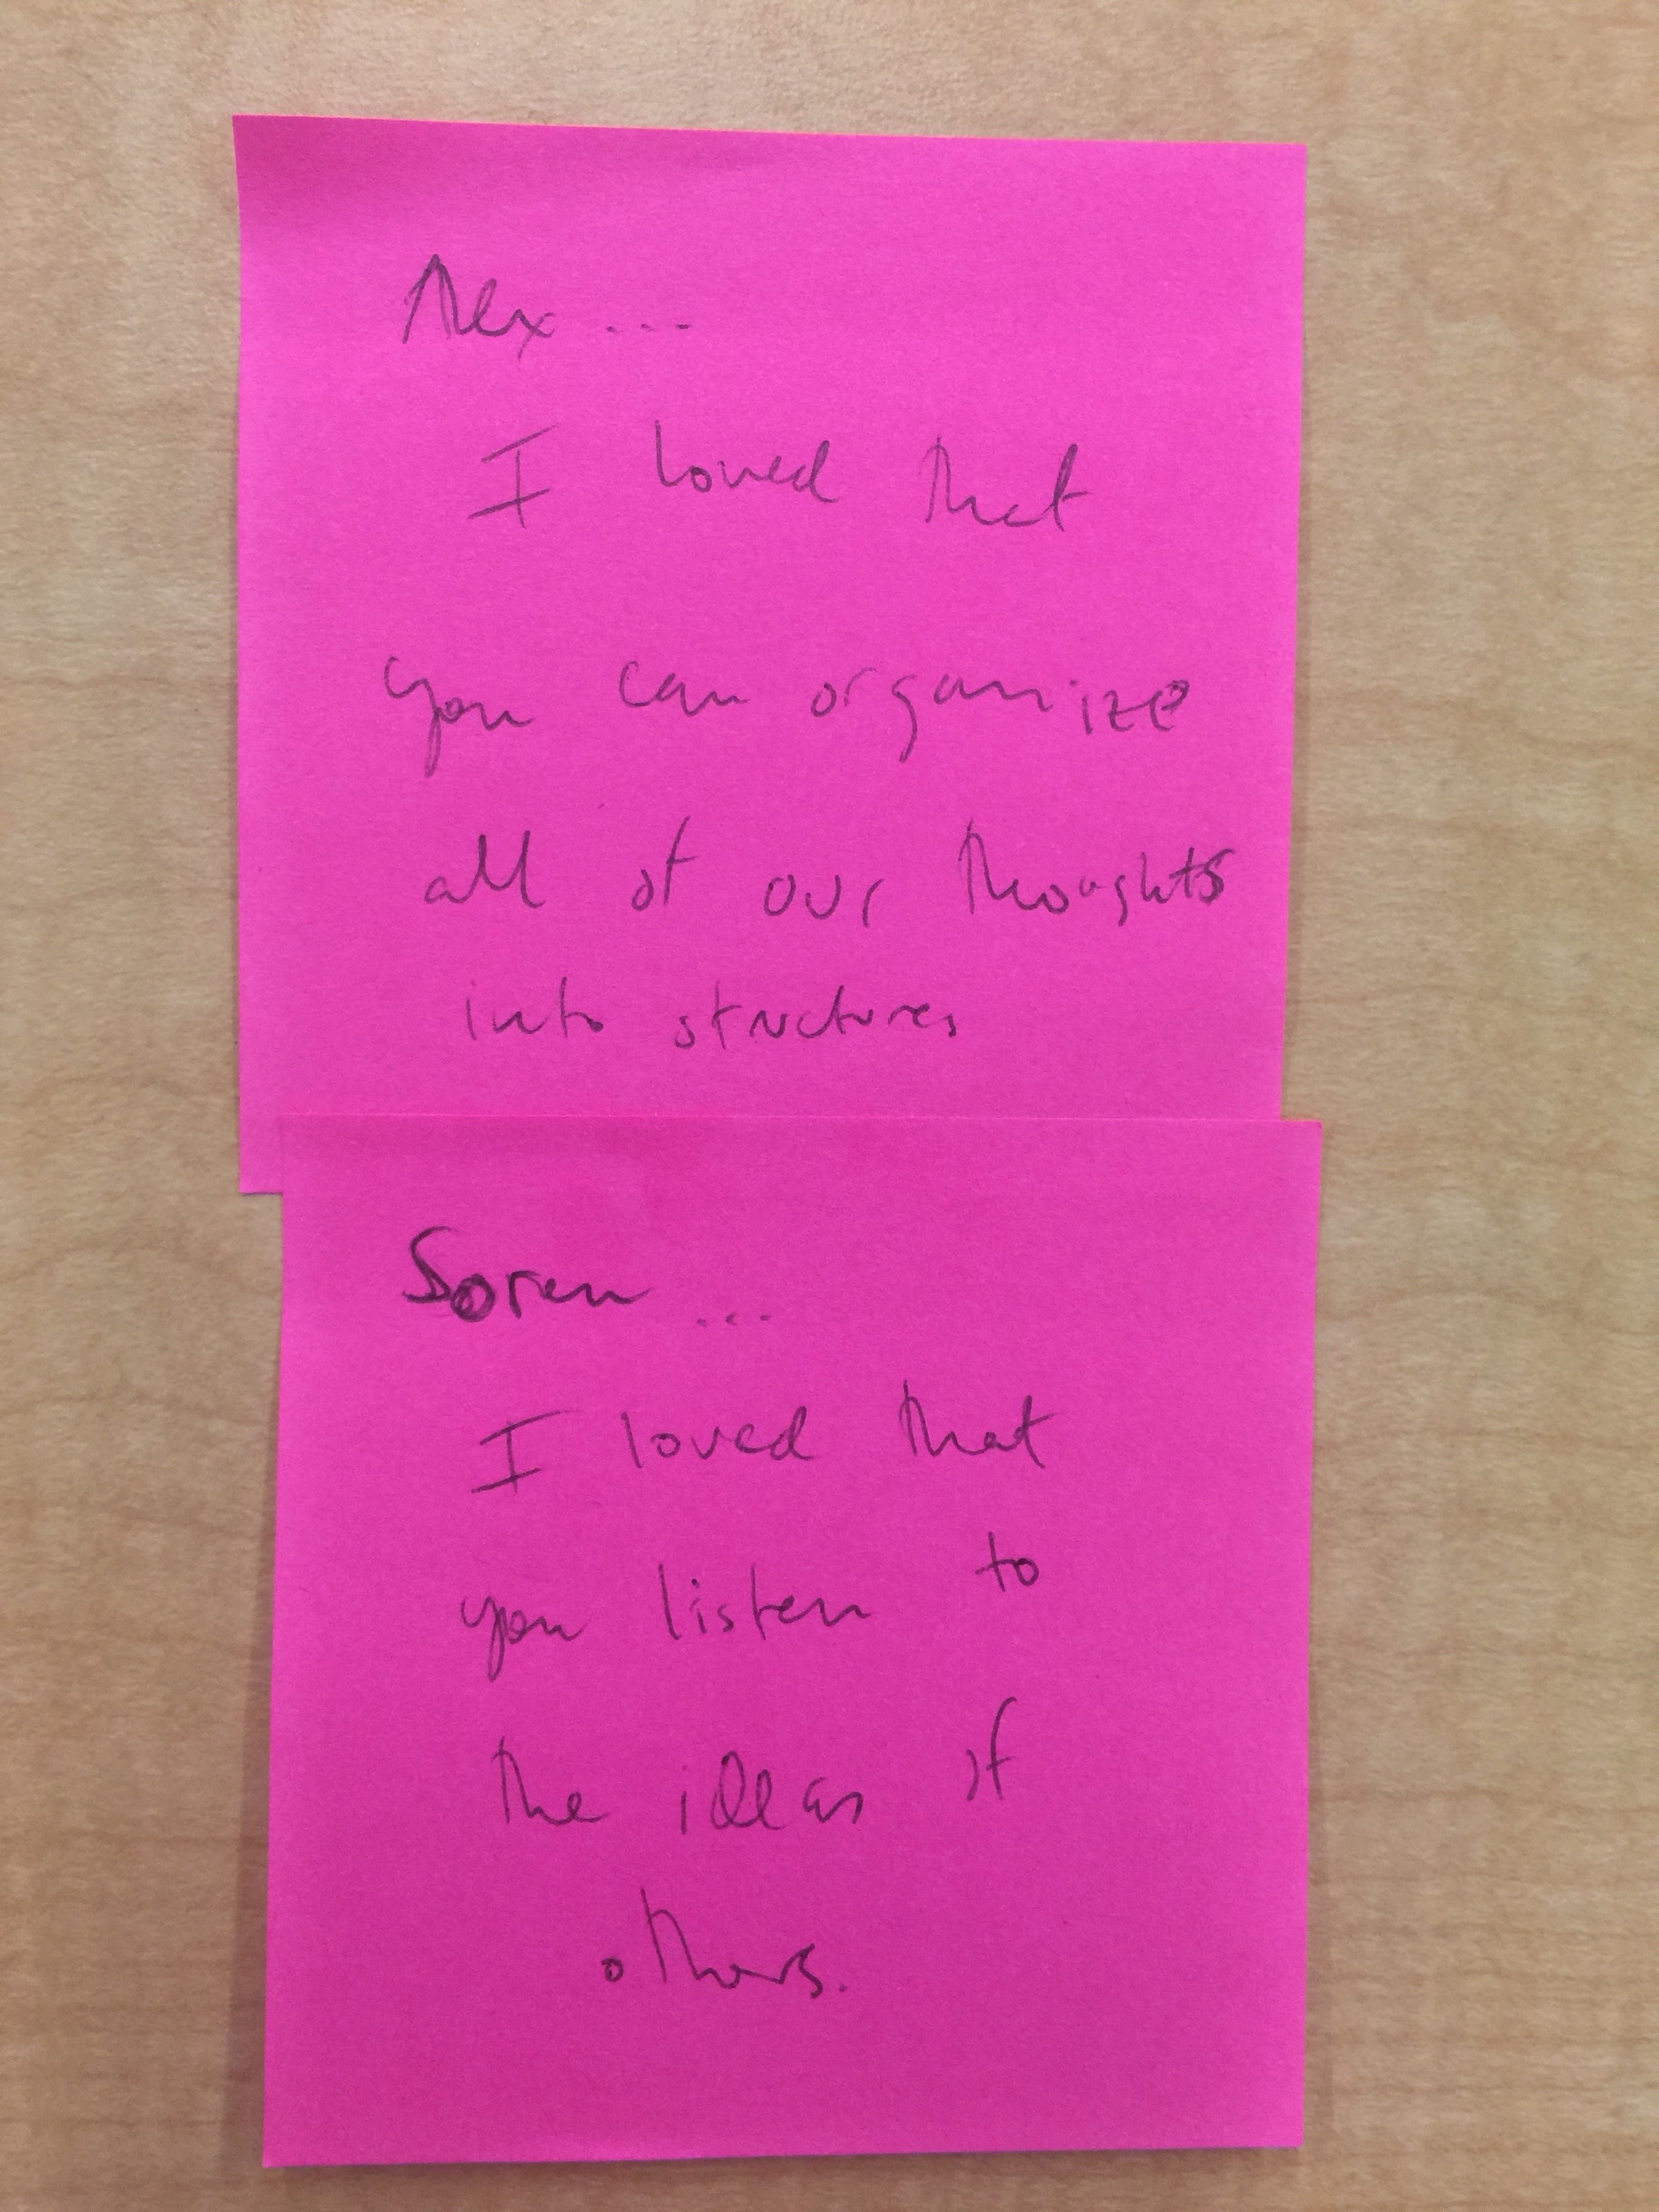 Alex ...
I loved that
you can organize
all of our thoughts
into structures
Soren ...
I loved that
you listen to
the ideas of
others.